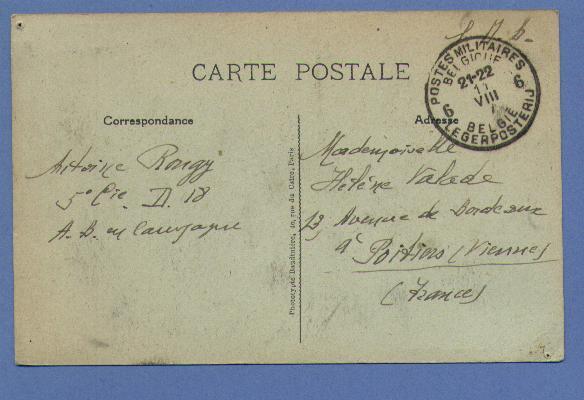 S. M. B.
CARTE POSTALE
POSTES MILITAIRES
BELGIQUE
21-22
11
VIII
6 6
BELGIE
LEGERPOSTERIJ
Correspondance
Antoine Rongy
5e Cie D. 18
A. B. en Campagne
Phototypie Baudinière, rue du Caire, Paris
Adresse
Mademoiselle
Hélène Valade
13, Avenue de Bordeaux
à Poitiers (Vienne)
(France)